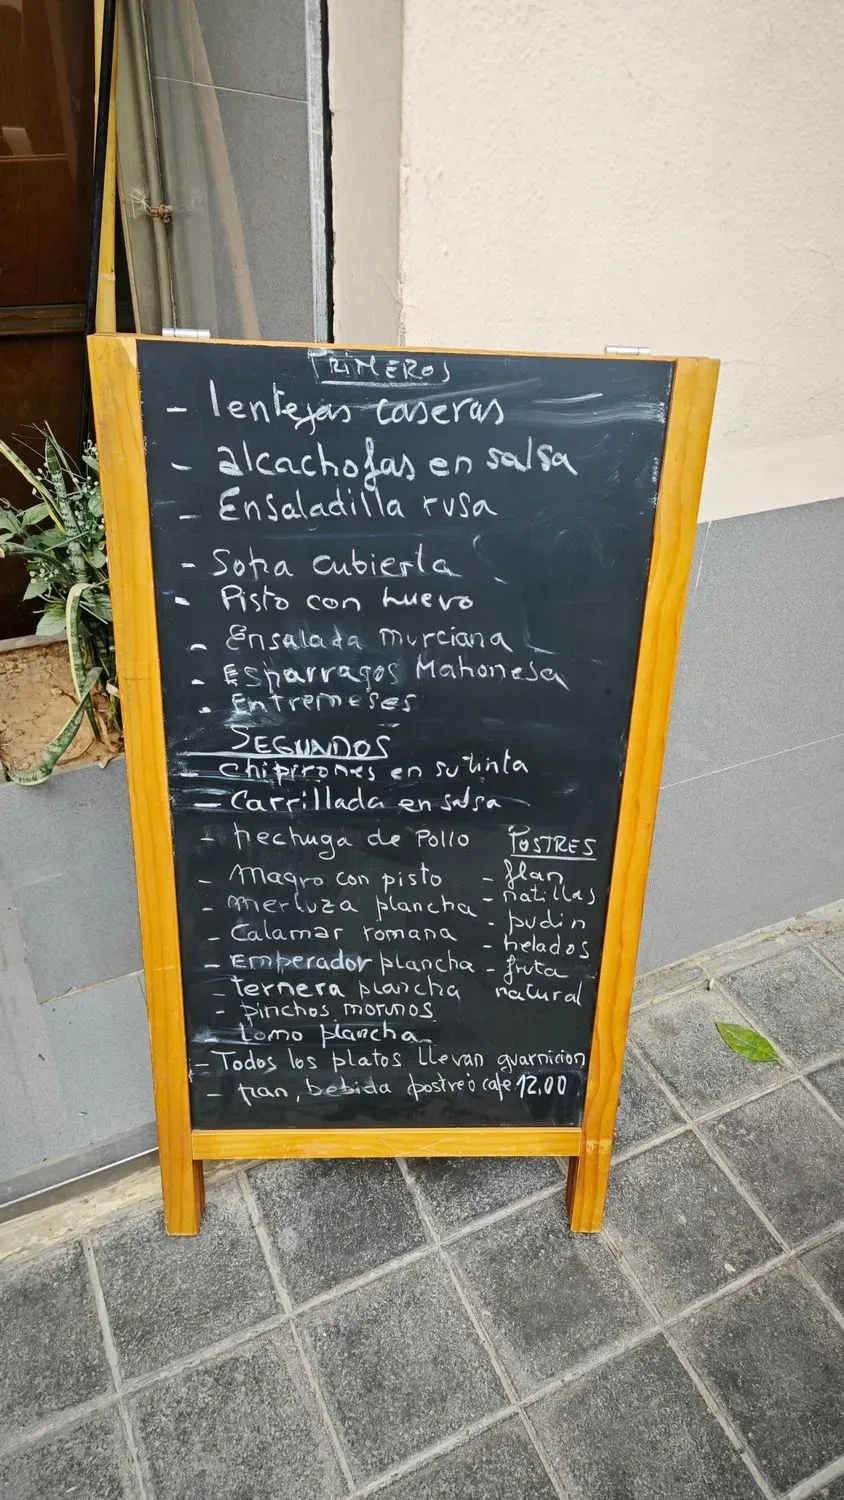 PRIMEROS
- lentejas caseras
- alcachofas en salsa
- Ensaladilla rusa
- Sopa cubierta
- Pisto con huevo
- Ensalada murciana
- Esparragos Mahonesa
- Entremeses
SEGUNDOS
- chipirones en su tinta
- Carrillada en salsa
- pechuga de Pollo
- Magro con pisto
- merluza plancha
- Calamar romana
- Emperador plancha
- ternera plancha
- pinchos morunos
lomo plancha
POSTRES
- flan
- natillas
- pudin
- helados
- fruta
natural
- Todos los platos llevan guarnicion
- pan, bebida postre ó cafe 12,00